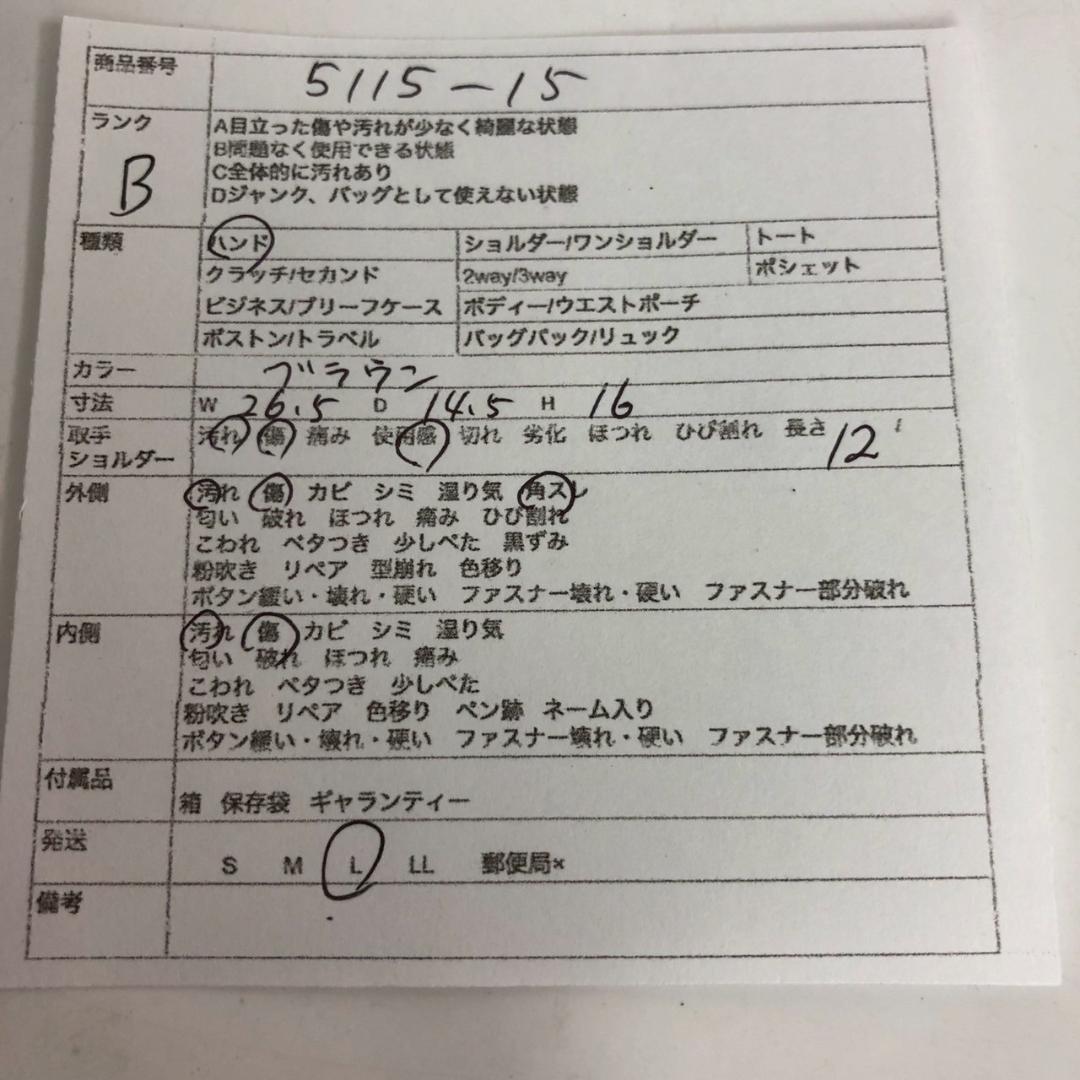 商品番号 5115-15
ランク B
A目立った傷や汚れが少なく綺麗な状態
B問題なく使用できる状態
C全体的に汚れあり
Dジャンク、バッグとして使えない状態
種類 ハンド ショルダー/ワンショルダー トート
クラッチ/セカンド 2way/3way ポシェット
ビジネス/ブリーフケース ボディー/ウエストポーチ
ボストン/トラベル バッグパック/リュック
カラー ブラウン
寸法 W 26.5 D 14.5 H 16
取手 汚れ 傷 痛み 使用感 切れ 劣化 ほつれ ひび割れ 長さ 12
ショルダー
外側 汚れ 傷 カビ シミ 湿り気 角スレ
匂い 破れ ほつれ 痛み ひび割れ
こわれ ベタつき 少しべた 黒ずみ
粉吹き リペア 型崩れ 色移り
ボタン緩い・壊れ・硬い ファスナー壊れ・硬い ファスナー部分破れ
内側 汚れ 傷 カビ シミ 湿り気
匂い 破れ ほつれ 痛み
こわれ ベタつき 少しべた
粉吹き リペア 色移り ペン跡 ネーム入り
ボタン緩い・壊れ・硬い ファスナー壊れ・硬い ファスナー部分破れ
付属品
箱 保存袋 ギャランティー
発送
S M L LL 郵便局×
備考